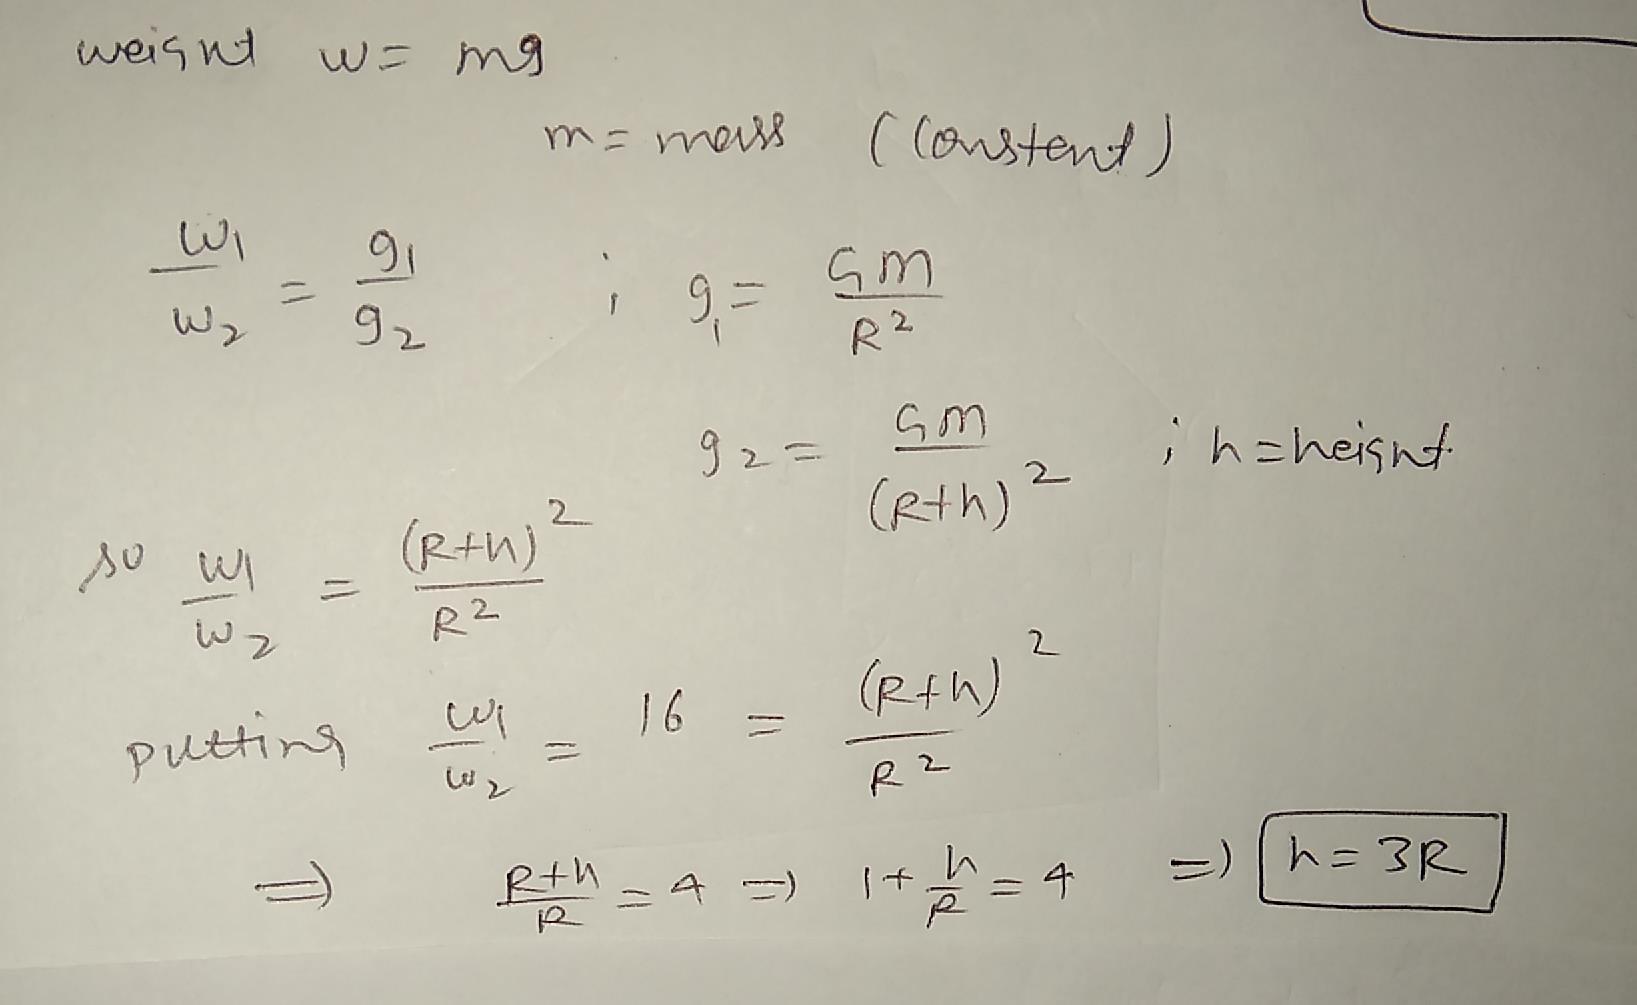 weight w = mg
m = mass (constent)
w1/w2 = g1/g2 ; g1 = Gm/R²
g2 = Gm/(R+h)² ; h = height
so w1/w2 = (R+h)²/R²
putting w1/w2 = 16 = (R+h)²/R²
⇒ R+h/R = 4 ⇒ 1 + h/R = 4 ⇒ h = 3R